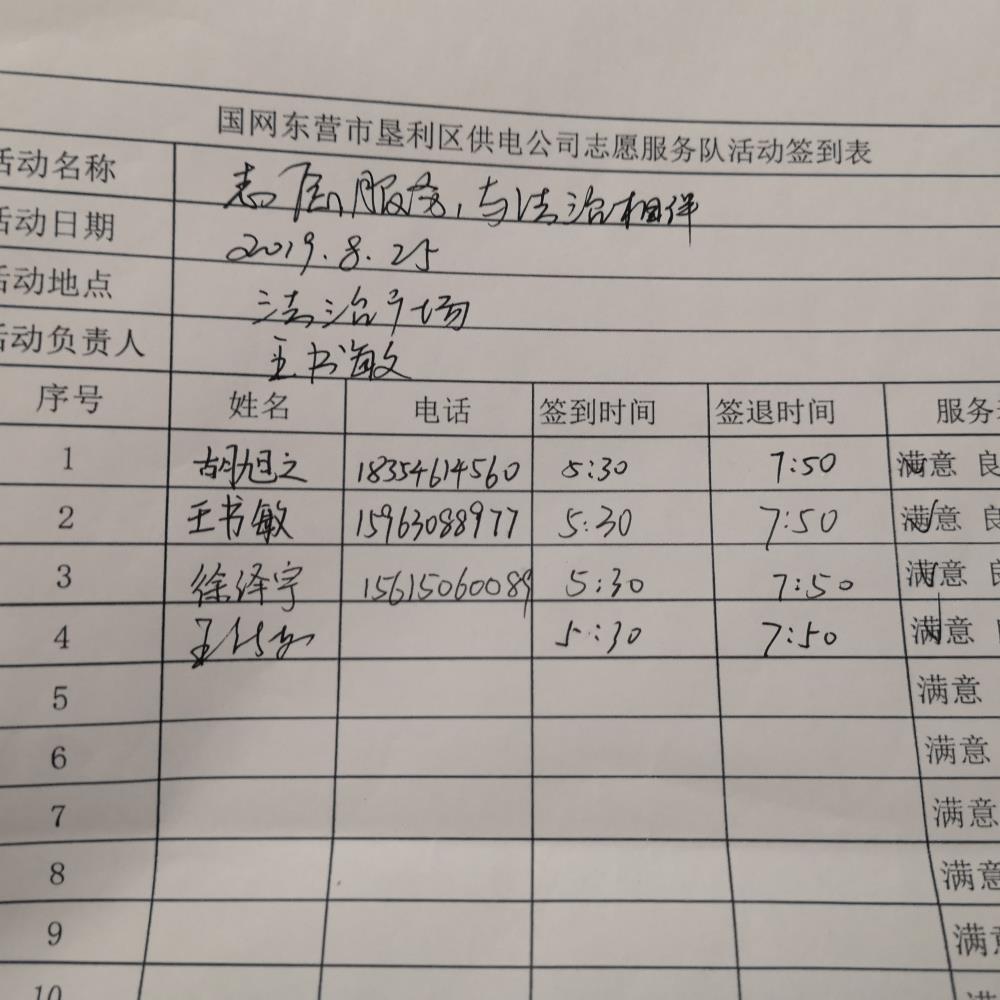 国网东营市垦利区供电公司志愿服务队活动签到表
活动名称 志愿服务,与法治相伴
活动日期 2019.8.25
活动地点 法治广场
活动负责人 王书敏
序号 姓名 电话 签到时间 签退时间 服务
1 胡旭之 18354614560 5:30 7:50 满意 良
2 王书敏 15963088977 5:30 7:50 满意 良
3 徐泽宇 15615060089 5:30 7:50 满意 良
4 5:30 7:50 满意
5 满意
6 满意
7 满意
8 满意
9 满意
10